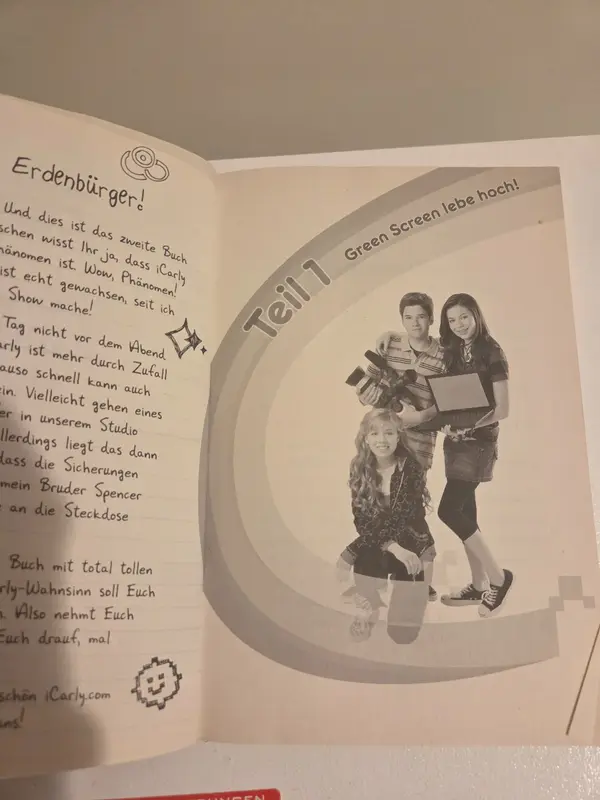 Erdenbürger!
Und dies ist das zweite Buch
wisst Ihr ja, dass iCarly
ist. Wow, Phänomen!
ist echt gewachsen, seit ich
Show mache!
Tag nicht vor dem Abend
ist mehr durch Zufall
schnell kann auch
Vielleicht gehen eines
in unserem Studio
liegt das dann
dass die Sicherungen
mein Bruder Spencer
an die Steckdose
Buch mit total tollen
Wahnsinn soll Euch
Also nehmt Euch
Euch drauf, mal
iCarly.com
Teil 1
Green Screen lebe hoch!